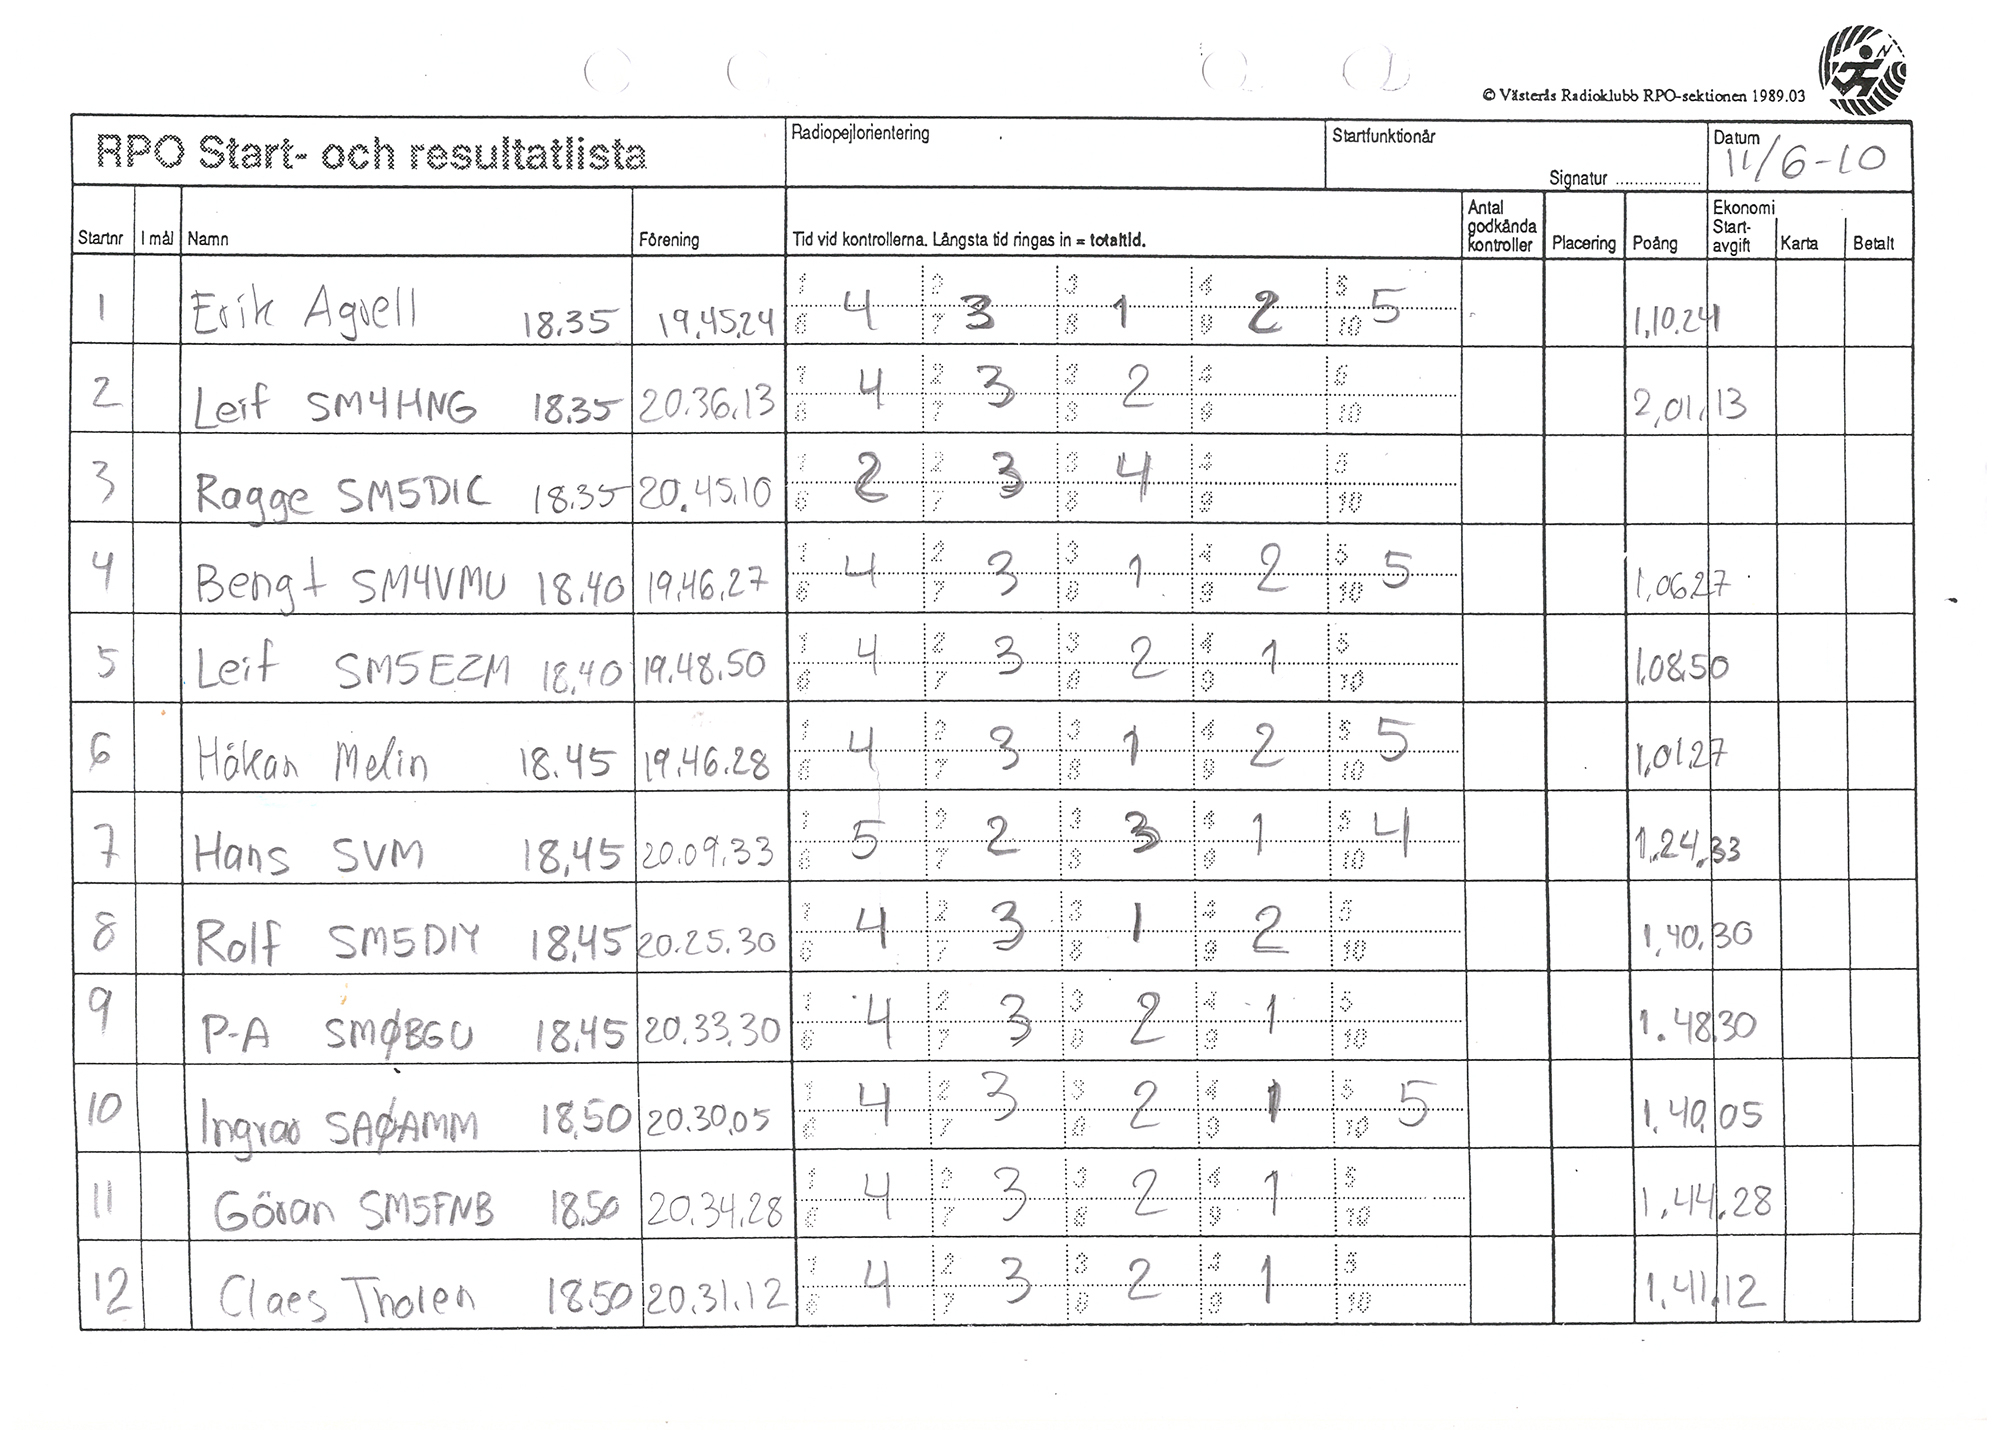 © Västerås Radioklubb RPO-sektionen 1989.03
RPO Start- och resultatlista Radiopejlorientering Startfunktionår Signatur .................. Datum 11/6-10
Startnr I mål Namn Förening Tid vid kontrollerna. Långsta tid ringas in = totaltid. Antal godkånda kontroller Placering Poång Ekonomi Start-avgift Karta Betalt
1 Erik Agrell 18.35 19.45.24 1 6 4 2 7 3 3 8 1 4 9 2 5 10 5 1.10.24
2 Leif SM4HNG 18.35 20.36.13 1 6 4 2 7 3 3 8 2 4 9 5 10 2,01.13
3 Ragge SM5DIC 18.35 20.45.10 1 6 2 2 7 3 3 8 4 4 9 5 10
4 Bengt SM4VMU 18.40 19.46.27 1 6 4 2 7 3 3 8 1 4 9 2 5 10 5 1,06.27
5 Leif SM5EZM 18.40 19.48.50 1 6 4 2 7 3 3 8 2 4 9 1 5 10 1,08.50
6 Håkan Melin 18.45 19.46.28 1 6 4 2 7 3 3 8 1 4 9 2 5 10 5 1,01.27
7 Hans SVM 18.45 20.09.33 1 6 5 2 7 2 3 8 3 4 9 1 5 10 4 1.24.33
8 Rolf SM5DIY 18.45 20.25.30 1 6 4 2 7 3 3 8 1 4 9 2 5 10 1,40.30
9 P-A SMØBGU 18.45 20.33.30 1 6 4 2 7 3 3 8 2 4 9 1 5 10 1.48.30
10 Ingvar SAØAMM 18.50 20.30.05 1 6 4 2 7 3 3 8 2 4 9 1 5 10 5 1.40.05
11 Göran SM5FNB 18.50 20.34.28 1 6 4 2 7 3 3 8 2 4 9 1 5 10 1.44.28
12 Claes Tholen 18.50 20.31.12 1 6 4 2 7 3 3 8 2 4 9 1 5 10 1.41.12